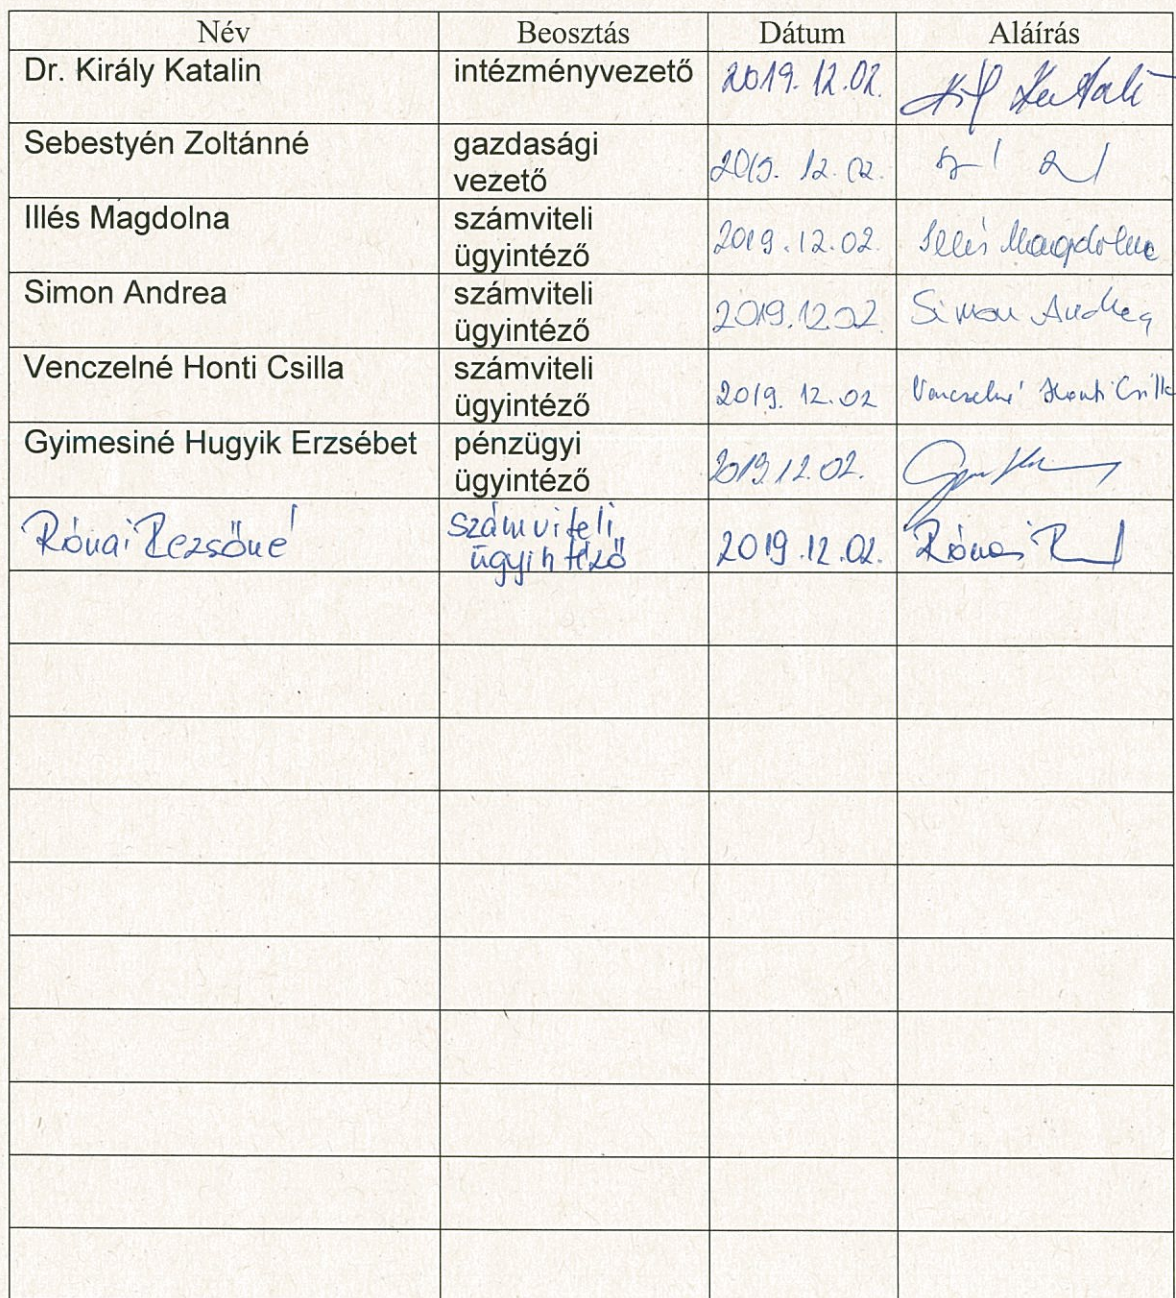 Név Beosztás Dátum Aláírás
Dr. Király Katalin intézményvezető 2019. 12.02.
Sebestyén Zoltánné gazdasági
vezető 2019. 12. 02.
Illés Magdolna számviteli
ügyintéző 2019.12.02. Illés Magdolna
Simon Andrea számviteli
ügyintéző 2019.12.02 Simon Andrea
Venczelné Honti Csilla számviteli
ügyintéző 2019. 12. 02 Venczelné Honti Csilla
Gyimesiné Hugyik Erzsébet pénzügyi
ügyintéző 2019.12.02.
Rónai Rezsőné számviteli
ügyintéző 2019.12.02. Rónai R